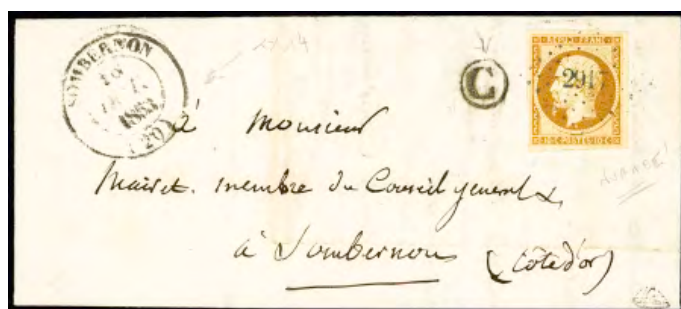 SOMBERNON
1853
(20)
C
REPUB. FRANC.
2917
10·C·POSTES·10·C
à Monsieur
Mairet. membre du Conseil general &
à Sombernon (Côte d'or)